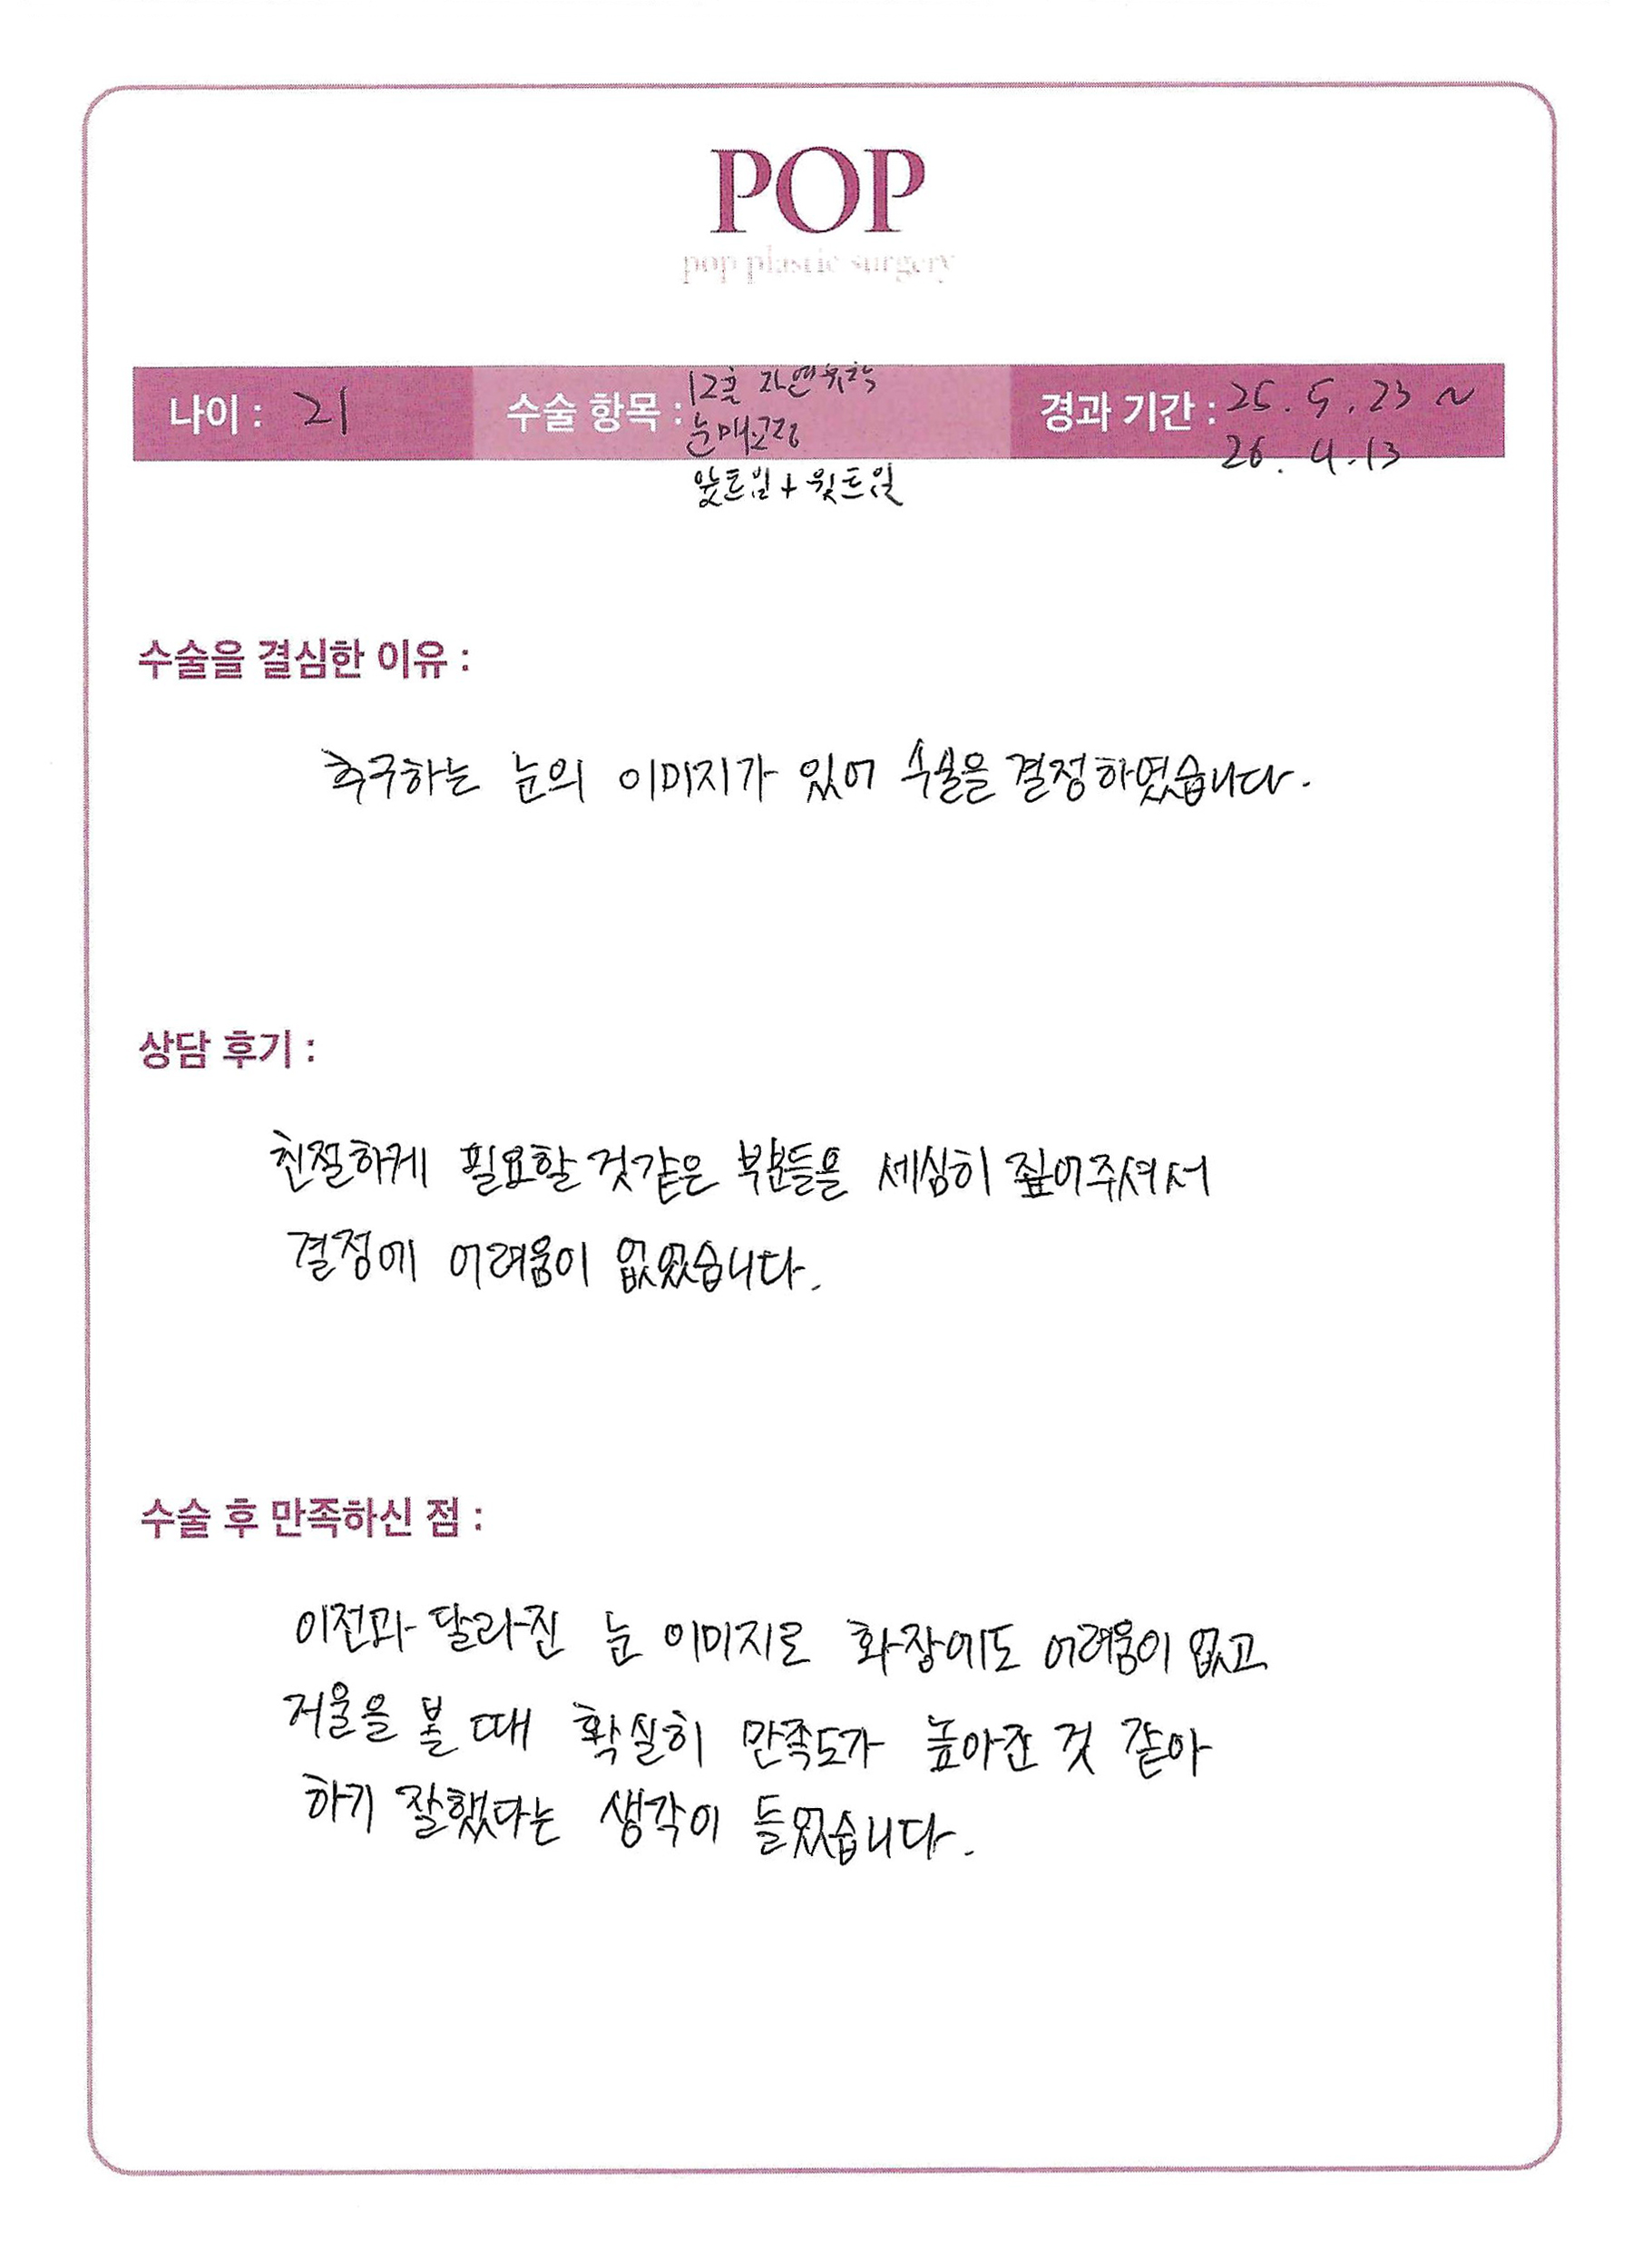 POP
pop plastic surgery
나이 : 21 수술 항목 : 12홀 자연유착 경과 기간 : 25. 5. 23 ~
눈매교정 26. 4. 13
앞트임 + 윗트임
수술을 결심한 이유 :
추구하는 눈의 이미지가 있어 수술을 결정하였습니다.
상담 후기 :
친절하게 필요할 것같은 부분들을 세심히 짚어주셔서
결정에 어려움이 없었습니다.
수술 후 만족하신 점 :
이전과 달라진 눈 이미지로 화장에도 어려움이 없고
거울을 볼 때 확실히 만족도가 높아진 것 같아
하기 잘했다는 생각이 들었습니다.